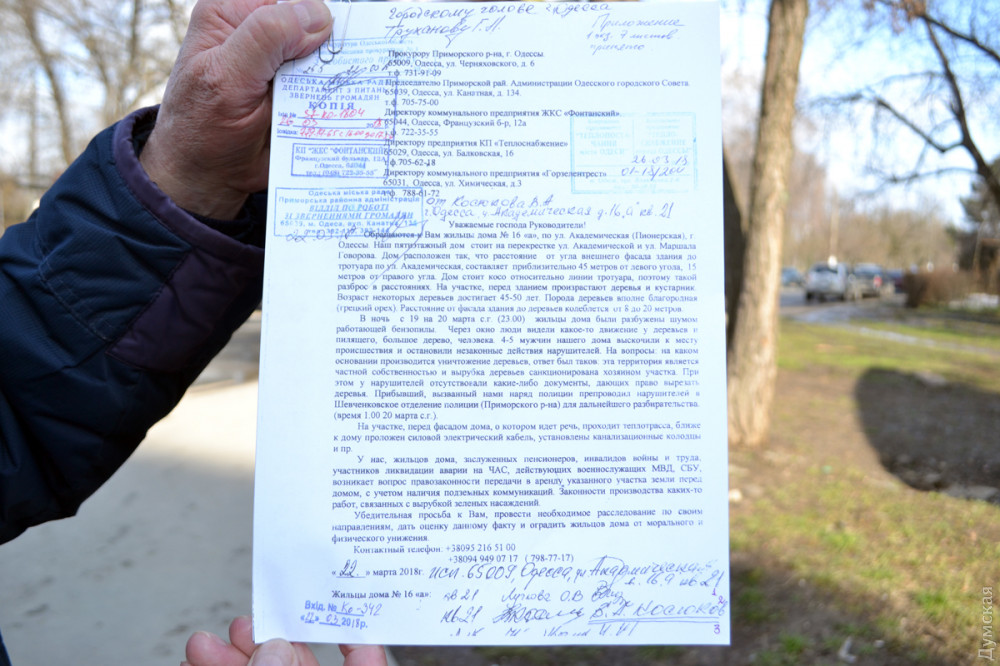 Городскому голове г. Одесса
Труханову Г.Л.
Приложение
Прокурору Приморского р-на, г. Одессы
65009, Одесса, ул. Черняховского, д. 6
т.ф. 731-91-09
Председателю Приморской рай. Администрации Одесского городского Совета
65039, Одесса, ул. Канатная, д. 134.
т.ф. 705-75-00
Директору коммунального предприятия ЖКС «Фонтанский»
65044, Одесса, Французский б-р, 12а
т.ф. 722-35-55
Директору предприятия КП «Теплоснабжение»
65029, Одесса, ул. Балковская, 16
т.ф.705-62-18
Директору коммунального предприятия «Горзелентрест»
65031, Одесса, ул. Химическая, д.3
т.ф. 788-61-72
ОДЕСЬКА МІСЬКА РАДА
ДЕПАРТАМЕНТ З ПИТАНЬ
ЗВЕРНЕНЬ ГРОМАДЯН
КОПІЯ
КП "ЖКС "ФОНТАНСЬКИЙ"
Французский бульвар, 12А
г.Одесса, 65044
Одеська міська рада
Приморська районна адміністрація
ВІДДІЛ ПО РОБОТІ
ЗІ ЗВЕРНЕННЯМИ ГРОМАДЯН
26.03.18
от Косюкова В.А
г. Одесса, ул. Академическая д. 16 "а" кв. 21
Уважаемые господа Руководители!
Обращаются к Вам жильцы дома № 16 «а», по ул. Академическая (Пионерская), г.
Одессы. Наш пятиэтажный дом стоит на перекрестке ул. Академической и ул. Маршала
Говорова. Дом расположен так, что расстояние от угла внешнего фасада здания до
тротуара по ул. Академическая, составляет приблизительно 45 метров от левого угла, 15
метров от правого угла. Дом стоит косо относительно линии тротуара, поэтому такой
разброс в расстояниях. На участке, перед зданием произрастают деревья и кустарник.
Возраст некоторых деревьев достигает 45-50 лет. Порода деревьев вполне благородная
(грецкий орех). Расстояние от фасада здания до деревьев колеблется от 8 до 20 метров.
В ночь с 19 на 20 марта с.г. (23.00) жильцы дома были разбужены шумом
работающей бензопилы. Через окно люди видели какое-то движение у деревьев и
пилящего, большое дерево, человека. 4-5 мужчин нашего дома выскочили к месту
происшествия и остановили незаконные действия нарушителей. На вопросы: на каком
основании производится уничтожение деревьев, ответ был таков: эта территория является
частной собственностью и вырубка деревьев санкционирована хозяином участка. При
этом у нарушителей отсутствовали какие-либо документы, дающих право вырезать
деревья. Прибывший, вызванный нами наряд полиции препроводил нарушителей в
Шевченковское отделение полиции (Приморского р-на) для дальнейшего разбирательства.
(время 1.00 20 марта с.г.).
На участке, перед фасадом дома, о котором идет речь, проходит теплотрасса, ближе
к дому проложен силовой электрический кабель, установлены канализационные колодцы
и пр.
У нас, жильцов дома, заслуженных пенсионеров, инвалидов войны и труда,
участников ликвидации аварии на ЧАС, действующих военнослужащих МВД, СБУ,
возникает вопрос правозаконности передачи в аренду указанного участка земли перед
домом, с учетом наличия подземных коммуникаций. Законности производства каких-то
работ, связанных с вырубкой зеленых насаждений.
Убедительная просьба к Вам, провести необходимое расследование по своим
направлениям, дать оценку данному факту и оградить жильцов дома от морального и
физического унижения.
Контактный телефон: +38095 216 51 00
+38094 949 07 17 ( 798-77-17)
«22» марта 2018г. исп. 65009, Одесса, ул Академическая
д. 16 "а" кв 21
Жильцы дома № 16 «а»: кв 21
кв 21
Вхід. № Ко-342
03 2018р.
3
Думская